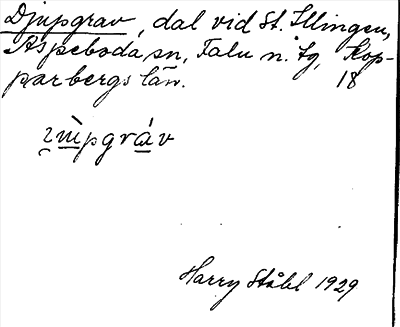 Djupgrav, dal vid St. Illingen,
Aspeboda sn, Falu n. tg, Kop-
parbergs län. 18
Harry Ståhl 1929